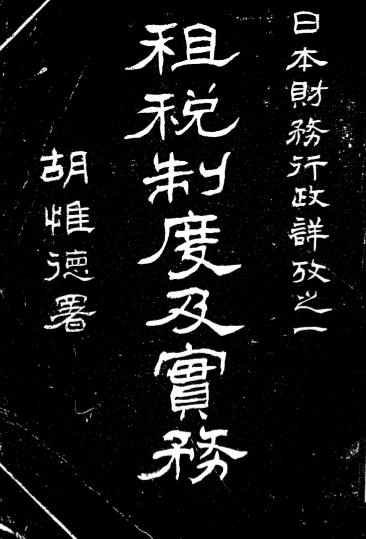 日本財務行政詳攷之一
租税制度及實務
胡惟德署